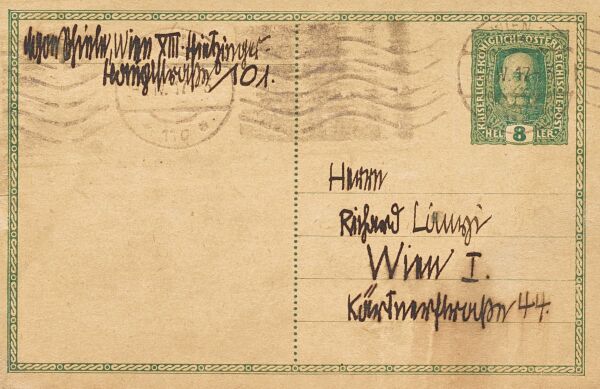 Egon Schiele, Wien XIII. Hietzinger-
Hauptstraße 101.
WIEN
110
KAISERLICHE KÖNIGLICHE ÖSTERREICHISCHE POST
8
HELLER
Herrn
Richard Lanyi
Wien I.
Kärtnerstraße 44.